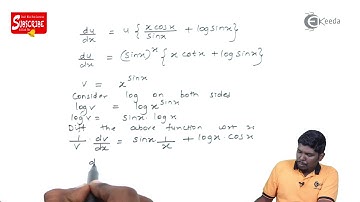 SUBSCRIBE
Ekeeda
du/dx = u { x cosx / sinx + log sinx }
du/dx = (sinx)^x { x cotx + log sinx }
v = x^sinx
Consider log on both sides
log v = log x^sinx
log v = sinx . log x
Diff the above function wrt x
1/v dv/dx = sinx 1/x + log x . cos x
d